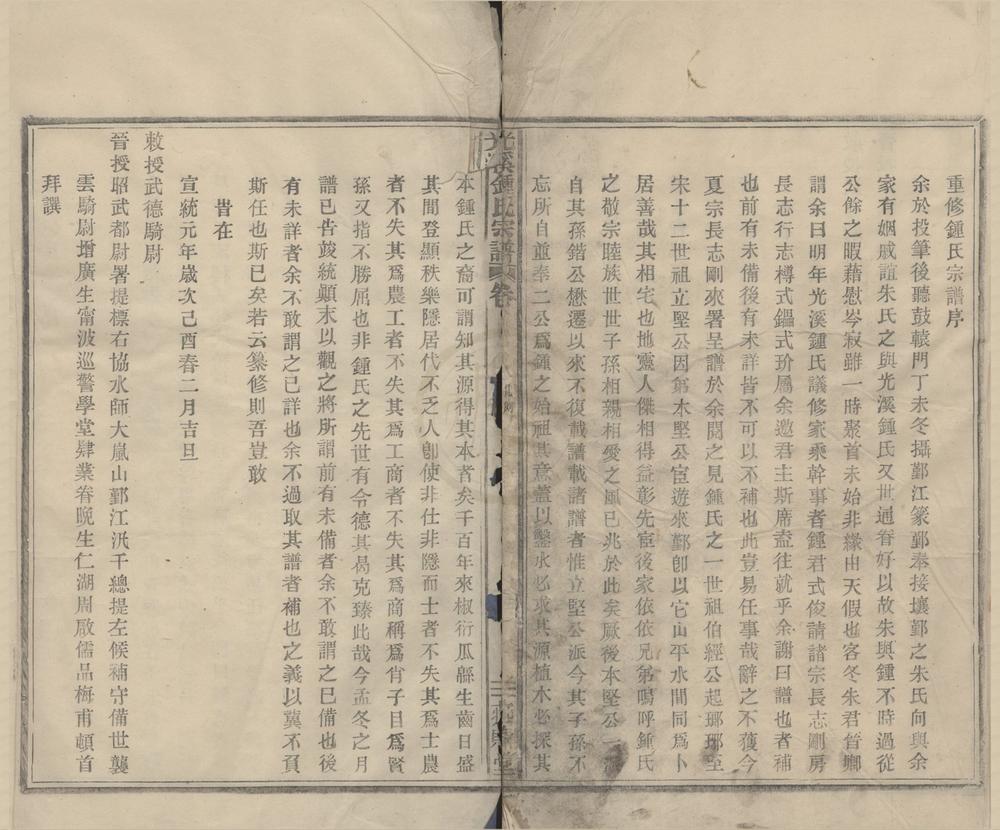 重修鍾氏宗譜序
余於投筆後聽鼓轅門丁未冬攝鄞江篆鄞奉接壤鄞之朱氏向與余
家有姻戚誼朱氏之與光溪鍾氏又世通眷好以故朱與鍾不時過從
公餘之暇藉慰岑寂雖一時聚首未始非緣由天假也客冬朱君晉鄉
謂余曰明年光溪鍾氏議修家乘幹事者鍾君式俊請諸宗長志剛房
長志行志樽式鑘式玠屬余邀君主斯席盍往就乎余謝曰譜也者補
也前有未備後有未詳皆不可以不補也此豈易任事哉辭之不獲今
夏宗長志剛來署呈譜於余閱之見鍾氏之一世祖伯經公起瑯琊至
宋十二世祖立堅公因第木堅公宦遊來鄞卽以它山平水間同爲卜
居善哉其相宅也地靈人傑相得益彰先宦後家依依兄弟嗚呼鍾氏
之敬宗睦族世世子孫相親相愛之風已兆於此矣厥後本堅公一派
自其孫鍇公懋遷以來不復載譜載諸譜者惟立堅公派今其子孫不
忘所自並奉二公爲鍾之始祖其意蓋以鑿水必求其源植木必探其
光溪鍾氏宗譜 卷
本鍾氏之裔可謂知其源得其本者矣千百年來椒衍瓜緜生齒日盛
其間登顯秩樂隱居代不乏人卽使非仕非隱而士者不失其爲士農
者不失其爲農工者不失其爲工商者不失其爲商稱爲肖子目爲賢
孫又指不勝屈也非鍾氏之先世有令德其曷克臻此哉今孟冬之月
譜已告竣統顚末以觀之將所謂前有未備者余不敢謂之已備也後
有未詳者余不敢謂之已詳也余不過取其譜者補也之義以冀不負
斯任也斯已矣若云纂修則吾豈敢
旹在
宣統元年歲次己酉春二月吉旦
敕授武德騎尉
晉授昭武都尉署提標右協水師大嵐山鄞江汛千總提左候補守備世襲
雲騎尉增廣生甯波巡警學堂肄業眷晚生仁湖周啟儒品梅甫頓首
拜譔